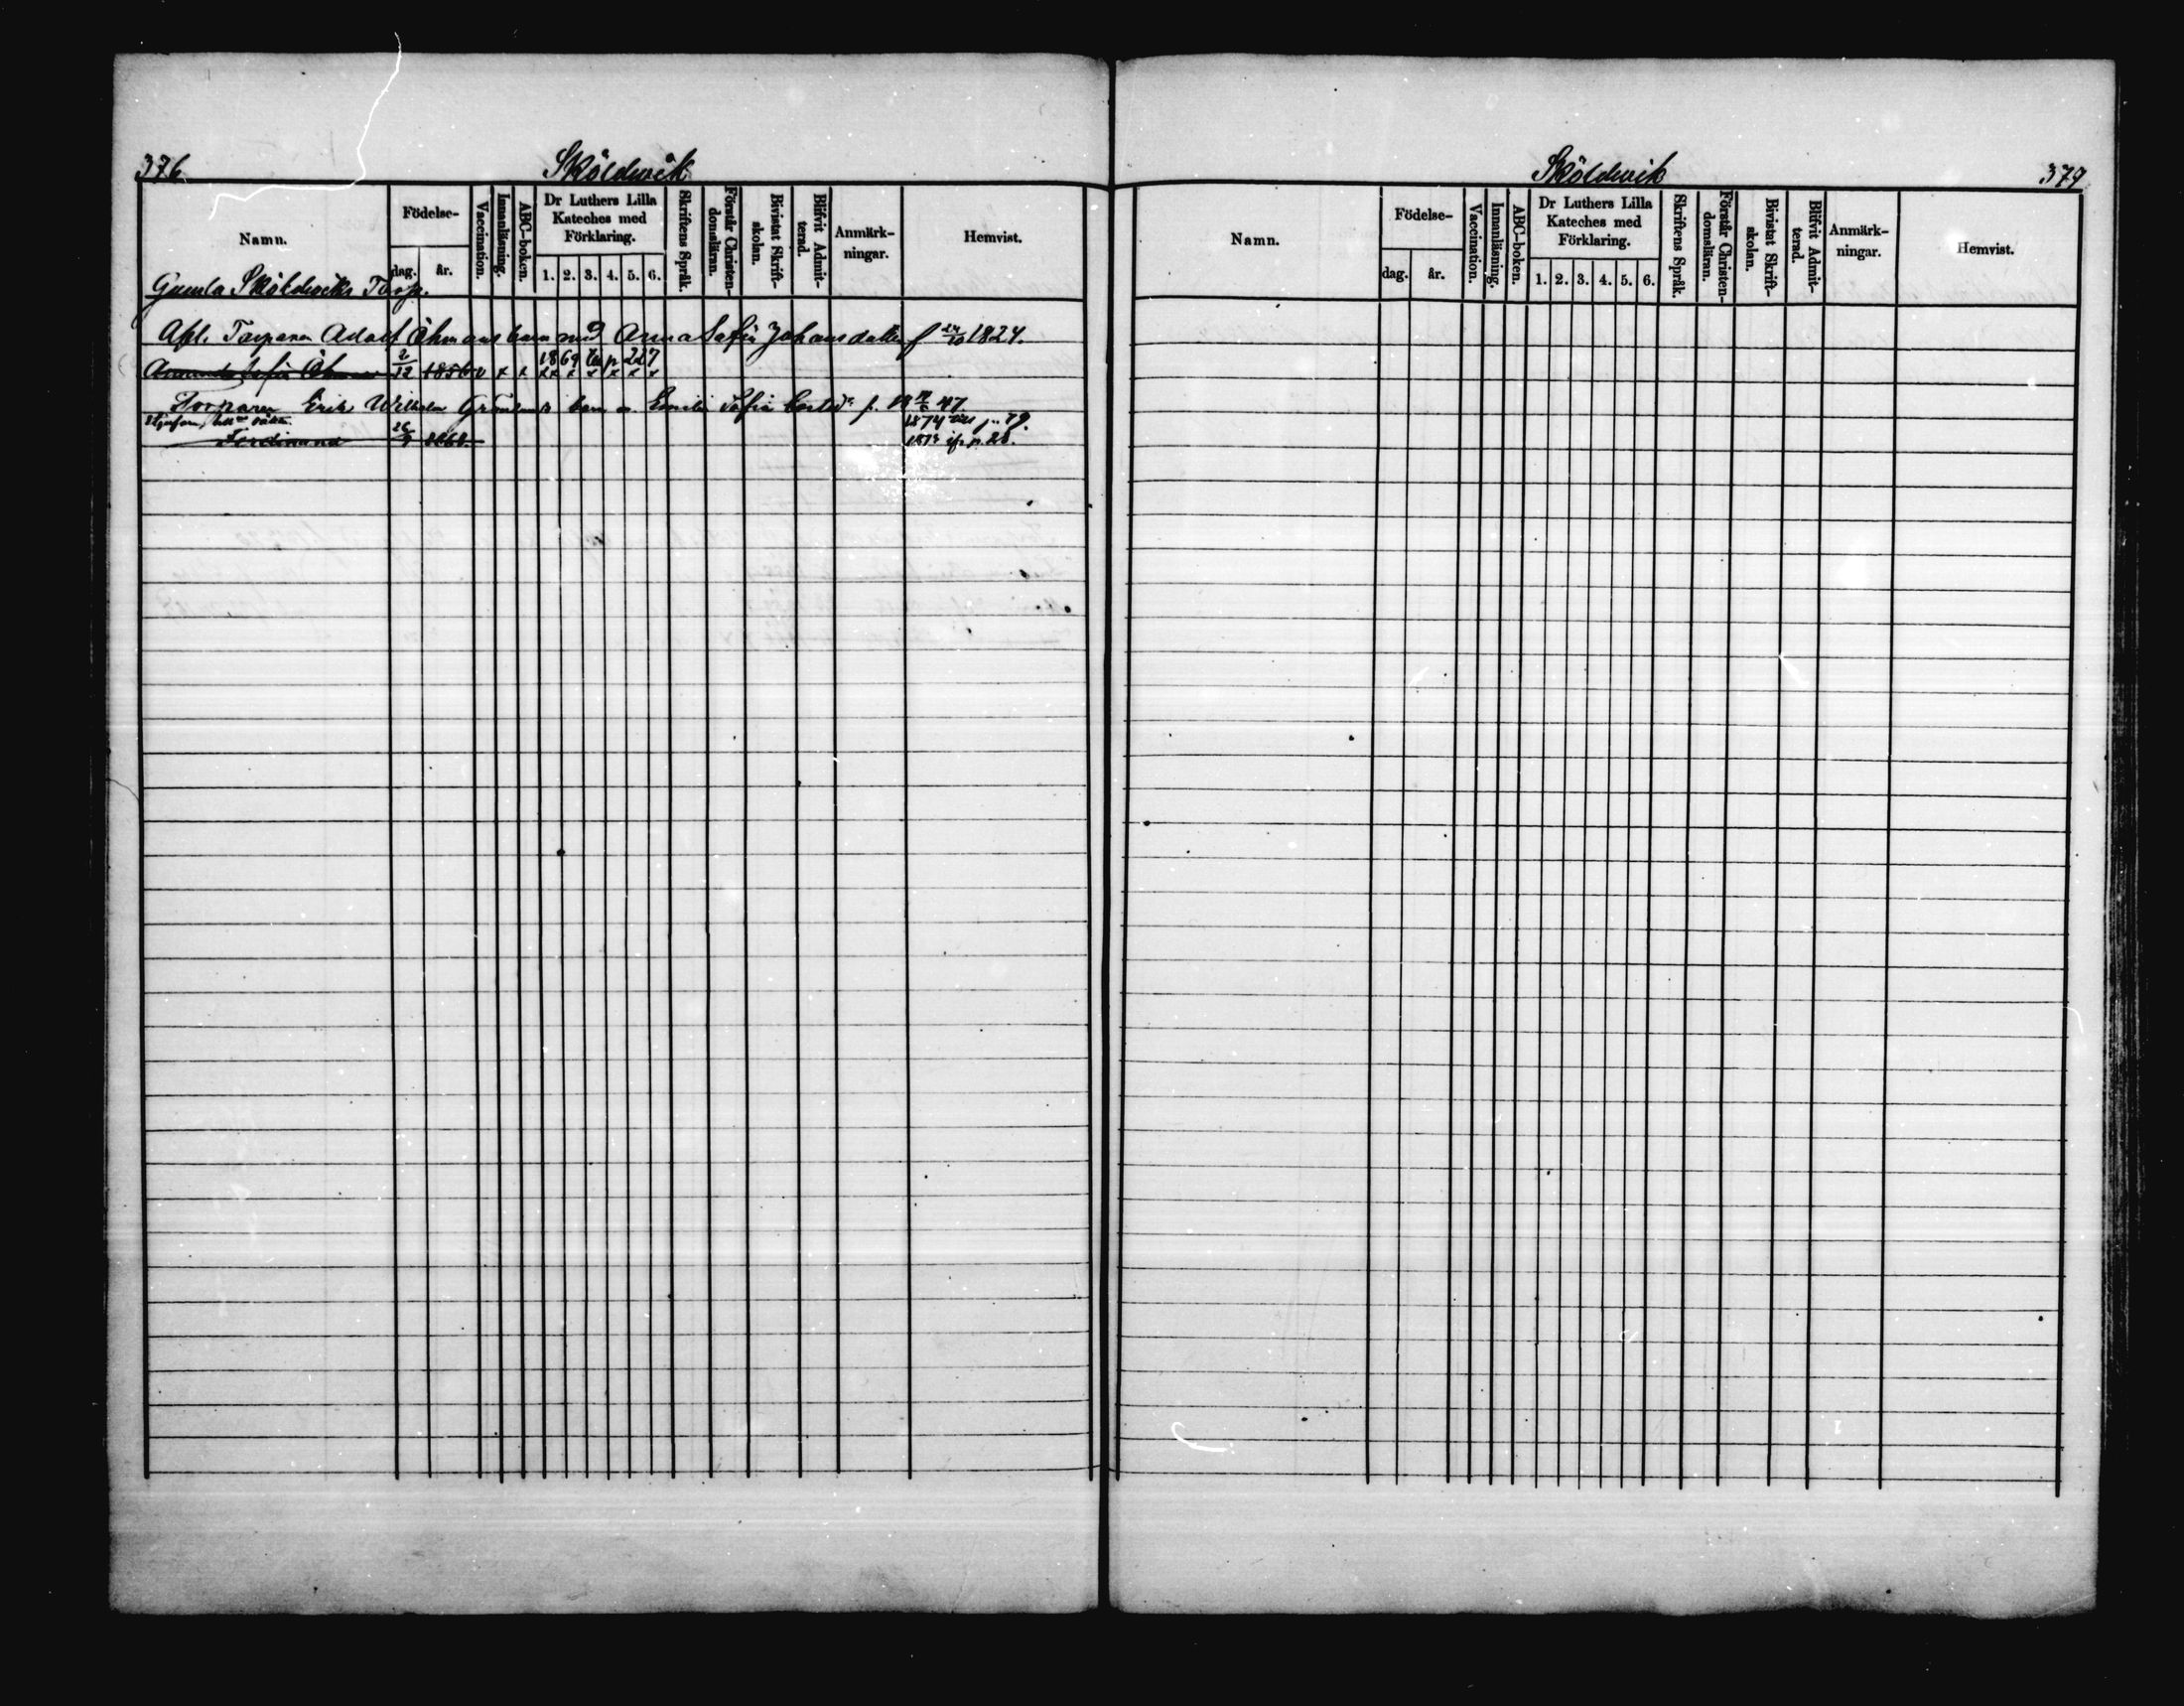 376
Sköldwik
Namn.
Födelse-
dag.
år.
Vaccination.
Innanläsning.
ABC-boken.
Dr Luthers Lilla
Kateches med
Förklaring.
1. 2. 3. 4. 5. 6.
Skriftens Språk.
Förstår Christen-
domsläran.
Bivistat Skrift-
skolan.
Blifvit Admit-
terad.
Anmärk-
ningar.
Hemvist.
Gamla Sköldwiks Torp.
Afl. Torparen Adolf Öhmans barn med Anna Sofia Johansdotter f 24/10 1824.
1869 p 227
Amanda Sofia Öhman 2/12 1856 v x x x x x x x x x
Torparen Erik Wilhelm Grönlunds barn m. Emilia Sofia f. 47
1874 p. 79.
Ferdinand 26/9 1868. 1873 p. 28.
Sköldwik
379
Namn.
Födelse-
dag.
år.
Vaccination.
Innanläsning.
ABC-boken.
Dr Luthers Lilla
Kateches med
Förklaring.
1. 2. 3. 4. 5. 6.
Skriftens Språk.
Förstår Christen-
domsläran.
Bivistat Skrift-
skolan.
Blifvit Admit-
terad.
Anmärk-
ningar.
Hemvist.